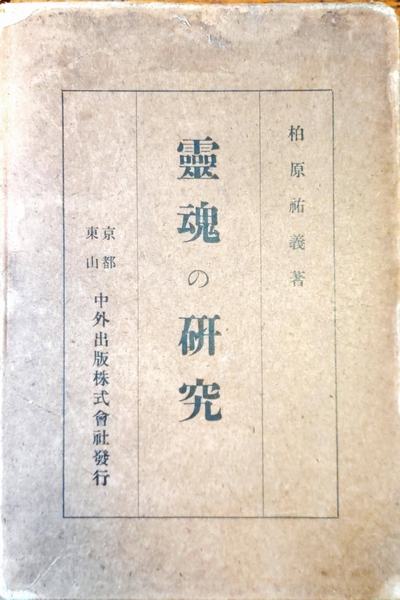 柏原祐義著
靈魂の研究
京都
東山
中外出版株式會社發行